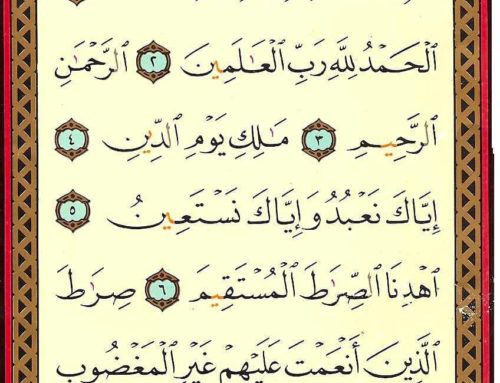 اَلْحَمْدُ لِلَّهِ رَبِّ الْعَـٰلَمِينَ ٢ الرَّحْمَـٰنِ
الرَّحِيمِ ٣ مَـٰلِكِ يَوْمِ الدِّينِ ٤
إِيَّاكَ نَعْبُدُ وَإِيَّاكَ نَسْتَعِينُ ٥
اهْدِنَا الصِّرَٰطَ الْمُسْتَقِيمَ ٦ صِرَٰطَ
الَّذِينَ أَنْعَمْتَ عَلَيْهِمْ غَيْرِ الْمَغْضُوبِ